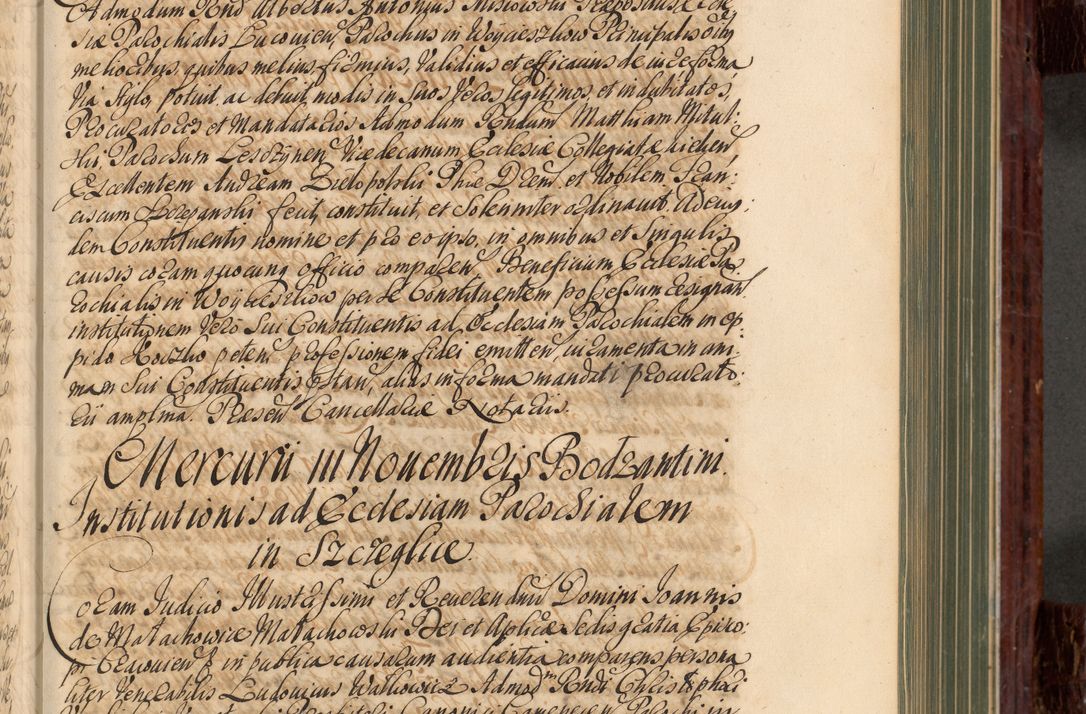 Admodum Rnd Albertus Antonius Praepositus Eccle
siae Parochialis Lucovien, Parochus in Woycieszkow Principalis oĩbȝ
melioribus, quibus melius, firmius, validius et efficacius de iure forma
via stylo, potuit, ac debuit modis in suos veros legitimos et indubitatos,
Procuratores et Mandatarios Admodum Rndum Matthiam Mitul-
ski, Parochum Lesozynen, Vicedecanum Ecclesiae Collegiatae
Excellentem Andream Bielopolski Phiae Drem et Nobilem Fran-
ciscum Szczepanski fecit, constituit, et solenniter ordinavit. Ad eius-
dem Constituentis nomine et pro eo ipso, in omnibus et singulis
causis coram quocunq officio comparen, Beneficium Ecclesiae Pa-
rochialis in Woycieszkow per se Constituentem possessum resignan
institutionem vero sui Constituentis ad Ecclesiam Parochialem in op-
pido Kocsko peten, professionem fidei emitten, iuramenta in ani-
mam sui Constituentis pstan, alias in forma mandati procurato-
rii amplma. Praesen Cancellariae Notariis.
Mercurii iii Novembris Bodzantini.
Institutionis ad Ecclesiam Parochialem
in Szczeglice
Coram Judicio Illustrissimi et Reverendmi Domini Joannis
de Małachowice Małachowski Dei et Aplicae Sedis gratia Episco-
pi Cracovien in publica causarum audientia comparens persona
liter Venerabilis Ludovicus Walkowicz Admodm Rndi Christophori